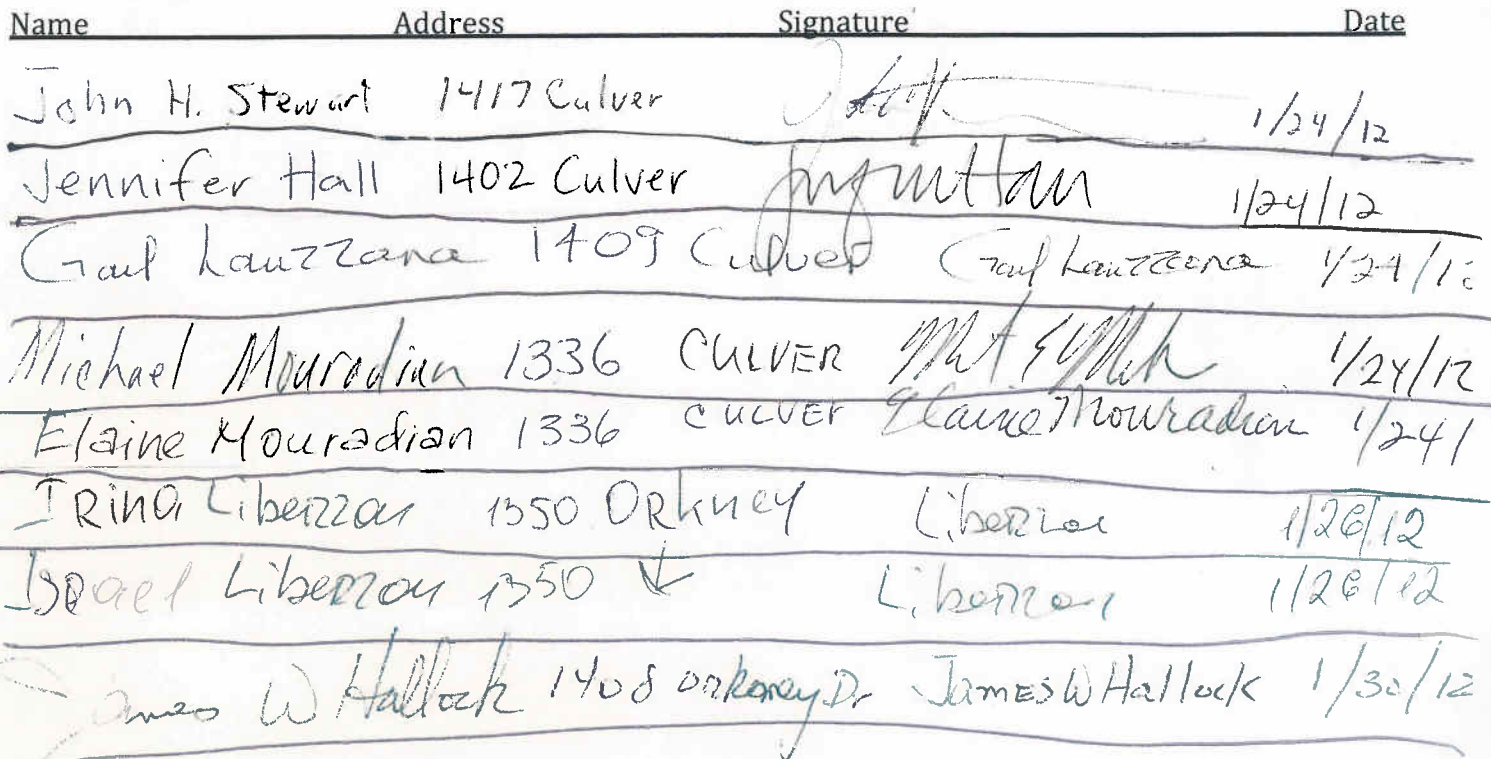 Name Address Signature Date
John H. Stewart 1417 Culver 1/24/12
Jennifer Hall 1402 Culver 1/24/12
Gail Lauzzana 1409 Culver Gail Lauzzana 1/24/12
Michael Mouradian 1336 CULVER 1/24/12
Elaine Mouradian 1336 CULVER Elaine Mouradian 1/24/
IRina Liberzon 1350 ORkney Liberzon 1/26/12
Israel Liberzon 1350 ↓ Liberzon 1/26/12
James W Hallock 1408 Orkney Dr James W Hallock 1/30/12